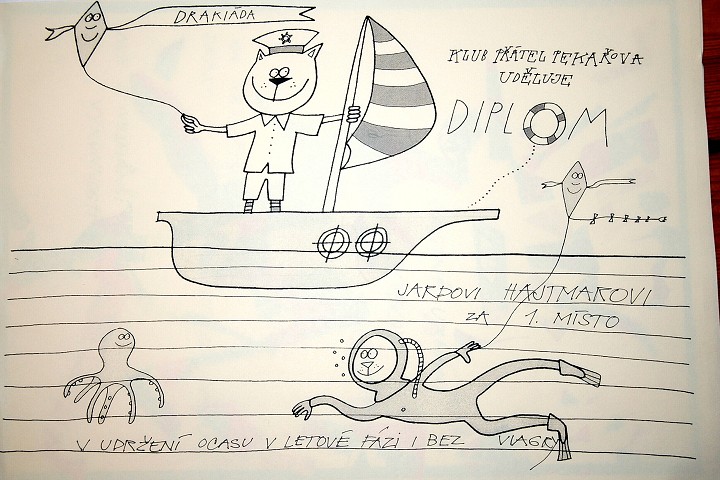 DRAKIÁDA
KLUB PŘÁTEL PEKAŘOVA
UDĚLUJE
DIPLOM
JARDOVI HAJTMAROVI
ZA 1. MÍSTO
V UDRŽENÍ OCASU V LETOVÉ FÁZI I BEZ VIAGRY